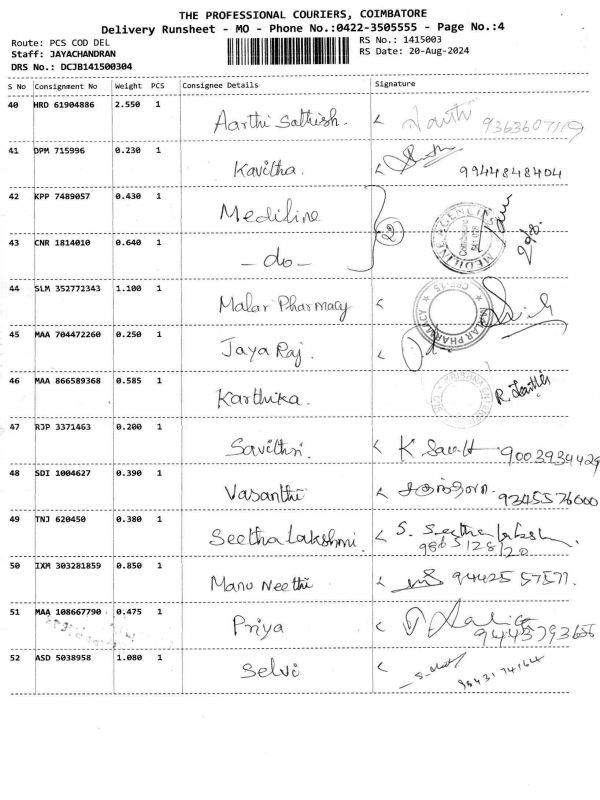 THE PROFESSIONAL COURIERS, COIMBATORE
Delivery Runsheet - MO - Phone No.:0422-3505555 - Page No.:4
Route: PCS COD DEL
RS No.: 1415003
Staff: JAYACHANDRAN
RS Date: 20-Aug-2024
DRS No.: DCJB141500304
S No Consignment No Weight PCS Consignee Details Signature
40 HRD 61904886 2.550 1 Aarthi Sathish. 9363607119
41 DPM 715996 0.230 1 Kavitha. 9944848404
42 KPP 7489057 0.430 1 Mediline
43 CNR 1814010 0.640 1 - do -
44 SLM 352772343 1.100 1 Malar Pharmacy MALAR PHARMACY
45 MAA 704472260 0.250 1 Jaya Raj.
46 MAA 866589368 0.585 1 Karthika.
47 RJP 3371463 0.200 1 Savithri. K Savith 9003934429
48 SDI 1004627 0.390 1 Vasanthi 9345576000
49 TNJ 620450 0.380 1 Seetha Lakshmi. S. Seetha Lakshmi
9865128120
50 IXM 303281859 0.850 1 Manu Neethi 94425 57577.
51 MAA 108667790 0.475 1 Priya
52 ASD 5038958 1.080 1 Selvi